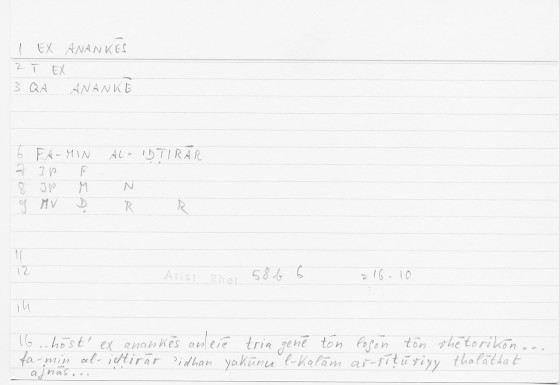 1 EX ANANKĒS
2 T EX
3 QA ANANKĒ
6 FA-MIN AL-IḌṬIRĀR
7 JP F
8 JP M N
9 MV Ḍ R R
11
12 Arist Rhet 58b 6 = 16-10
14
16 ..hōst' ex anankēs an eiē tria genē tōn logōn tōn rhētorikōn...
fa-min al-iḍṭirār 'idhan yakūnu l-kalām ar-rīṭūriyy thalāthat
ajnās...